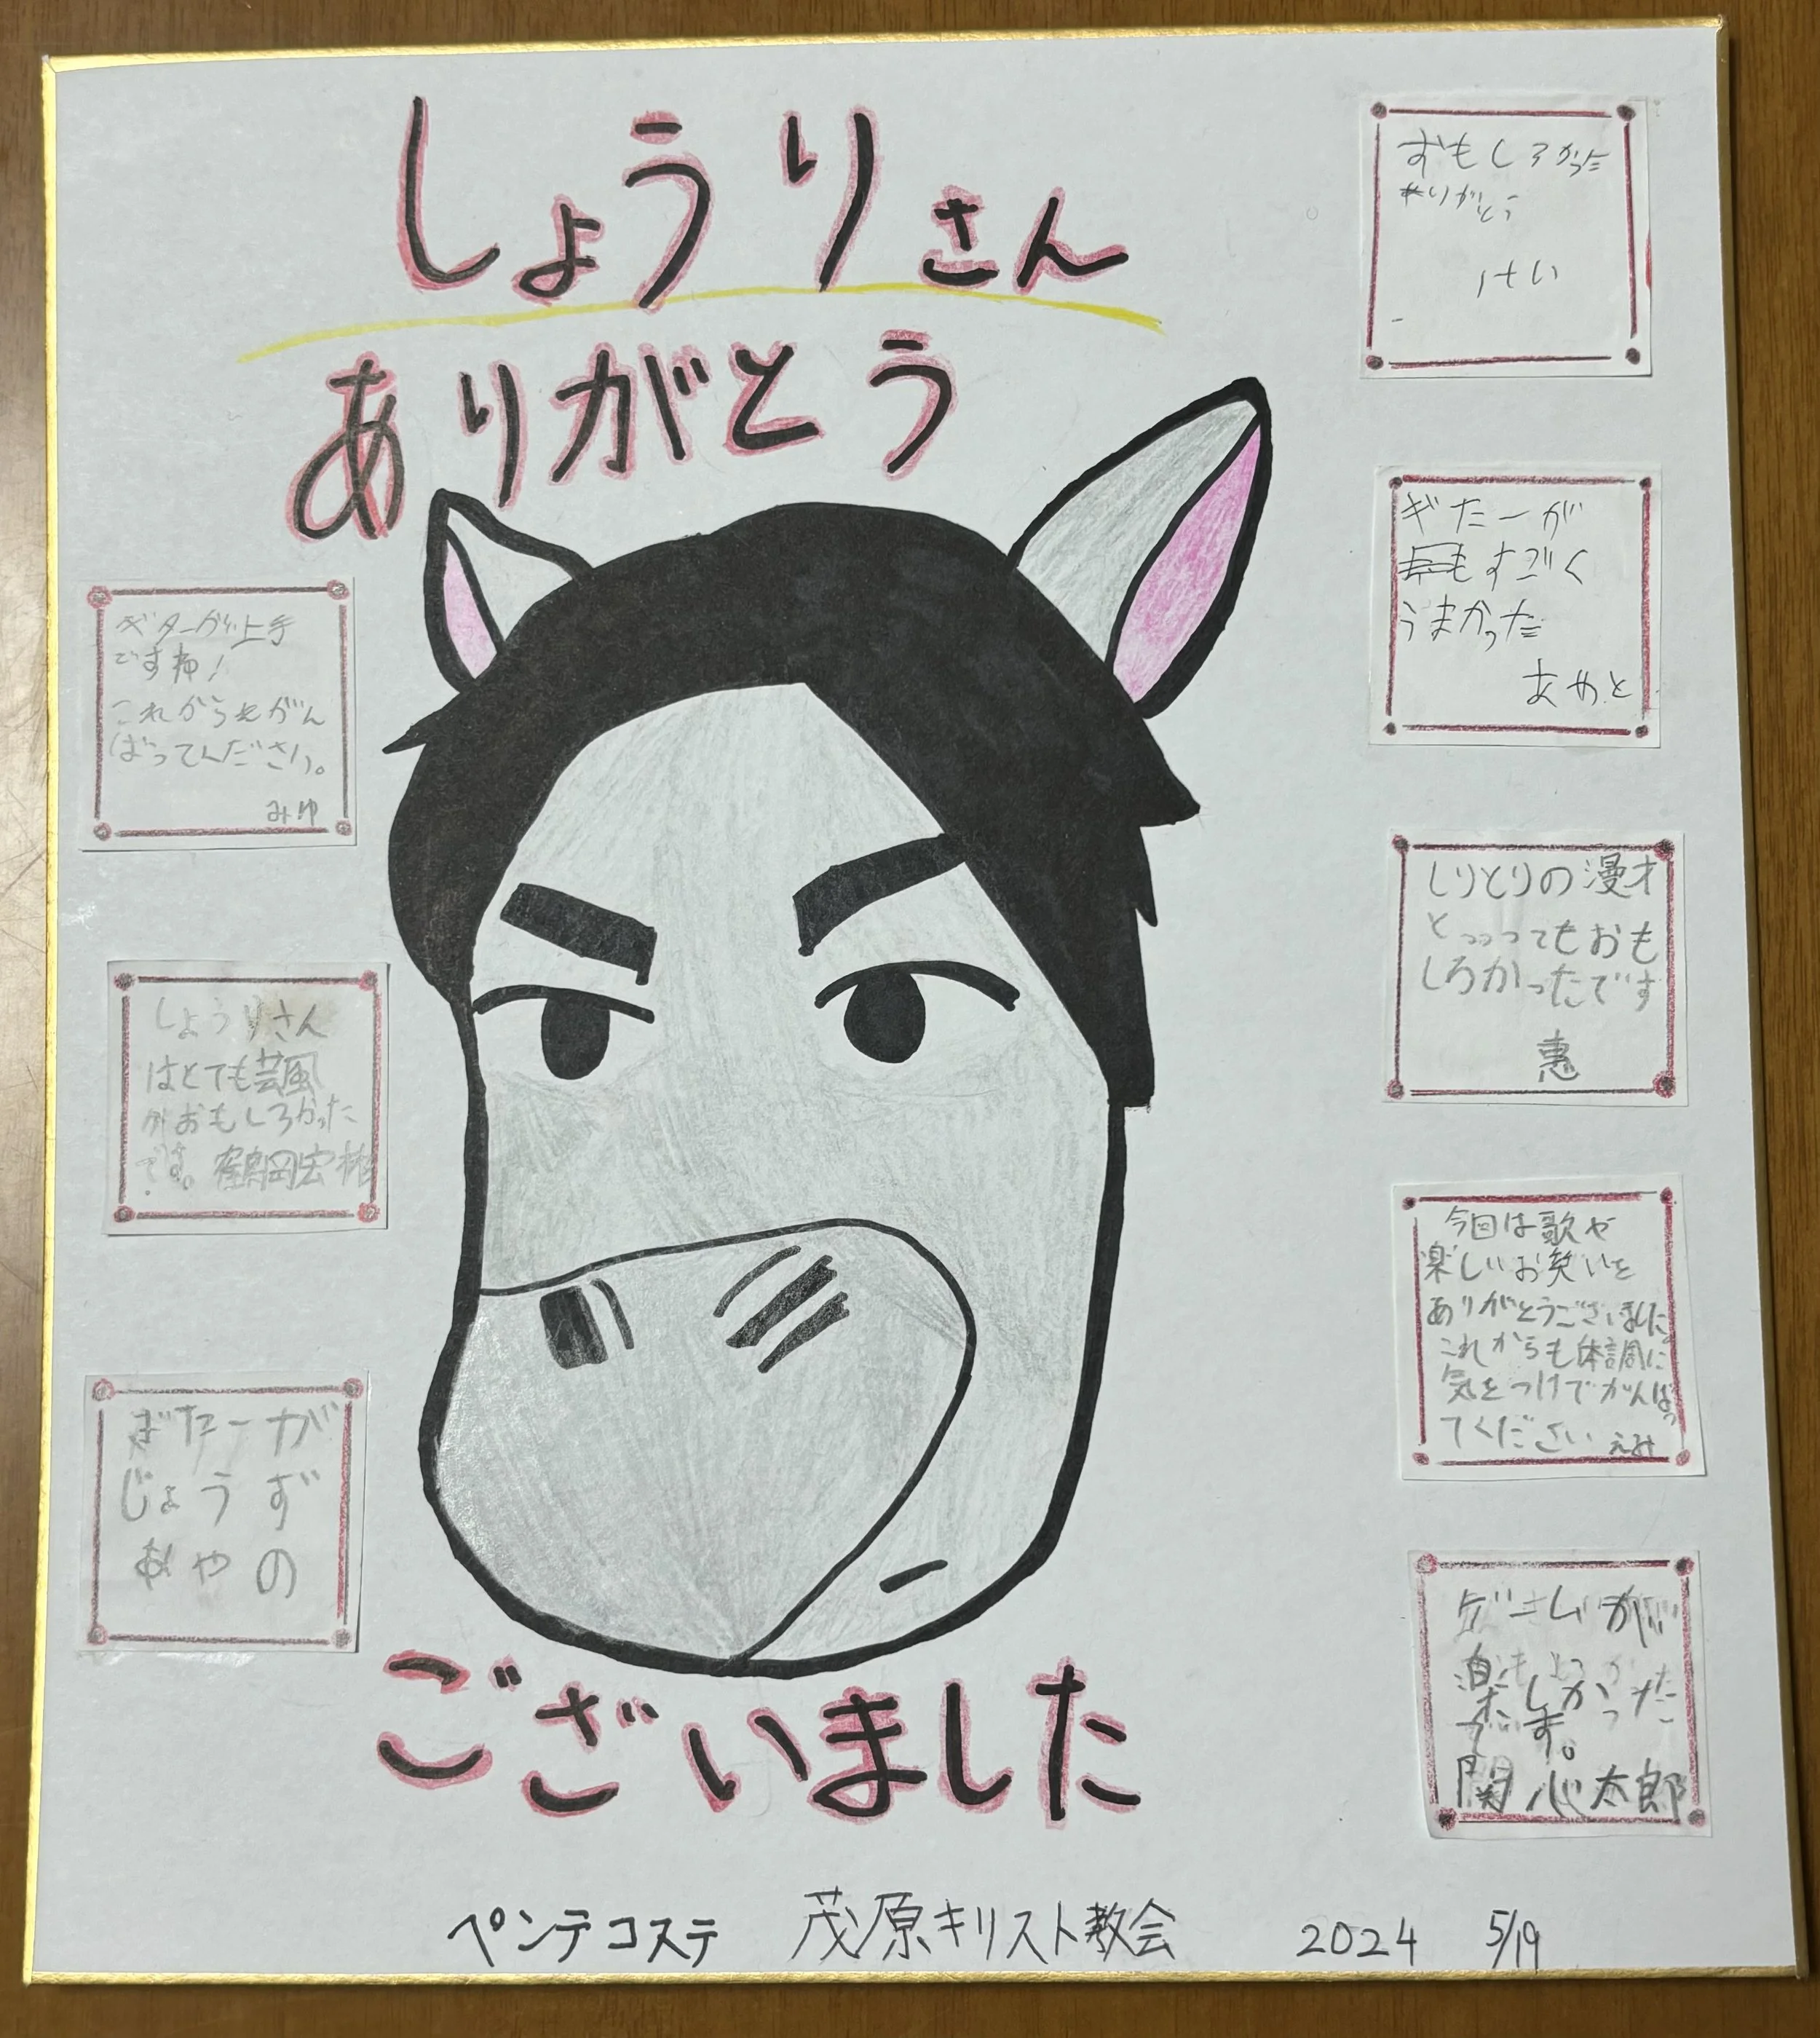 しょうりさん
ありがとう
ございました
ギターが上手
ですね!
これからもがん
ばってください。
みゆ
しょうりさん
はとても芸風
がおもしろかった
です。鶴岡宏祐
ぎたーが
じょうず
あやの
おもしろかった
ありがとう
けい
ぎたーが
すごく
うまかった
あやと
しりとりの漫才
とっっってもおも
しろかったです
恵
今回は歌や
楽しいお笑いを
ありがとうございました。
これからも体調に
気をつけてがんばっ
てください えみ
ゲームが
楽しかった
です。
関 心太郎
ペンテコステ 茂原キリスト教会 2024 5/19